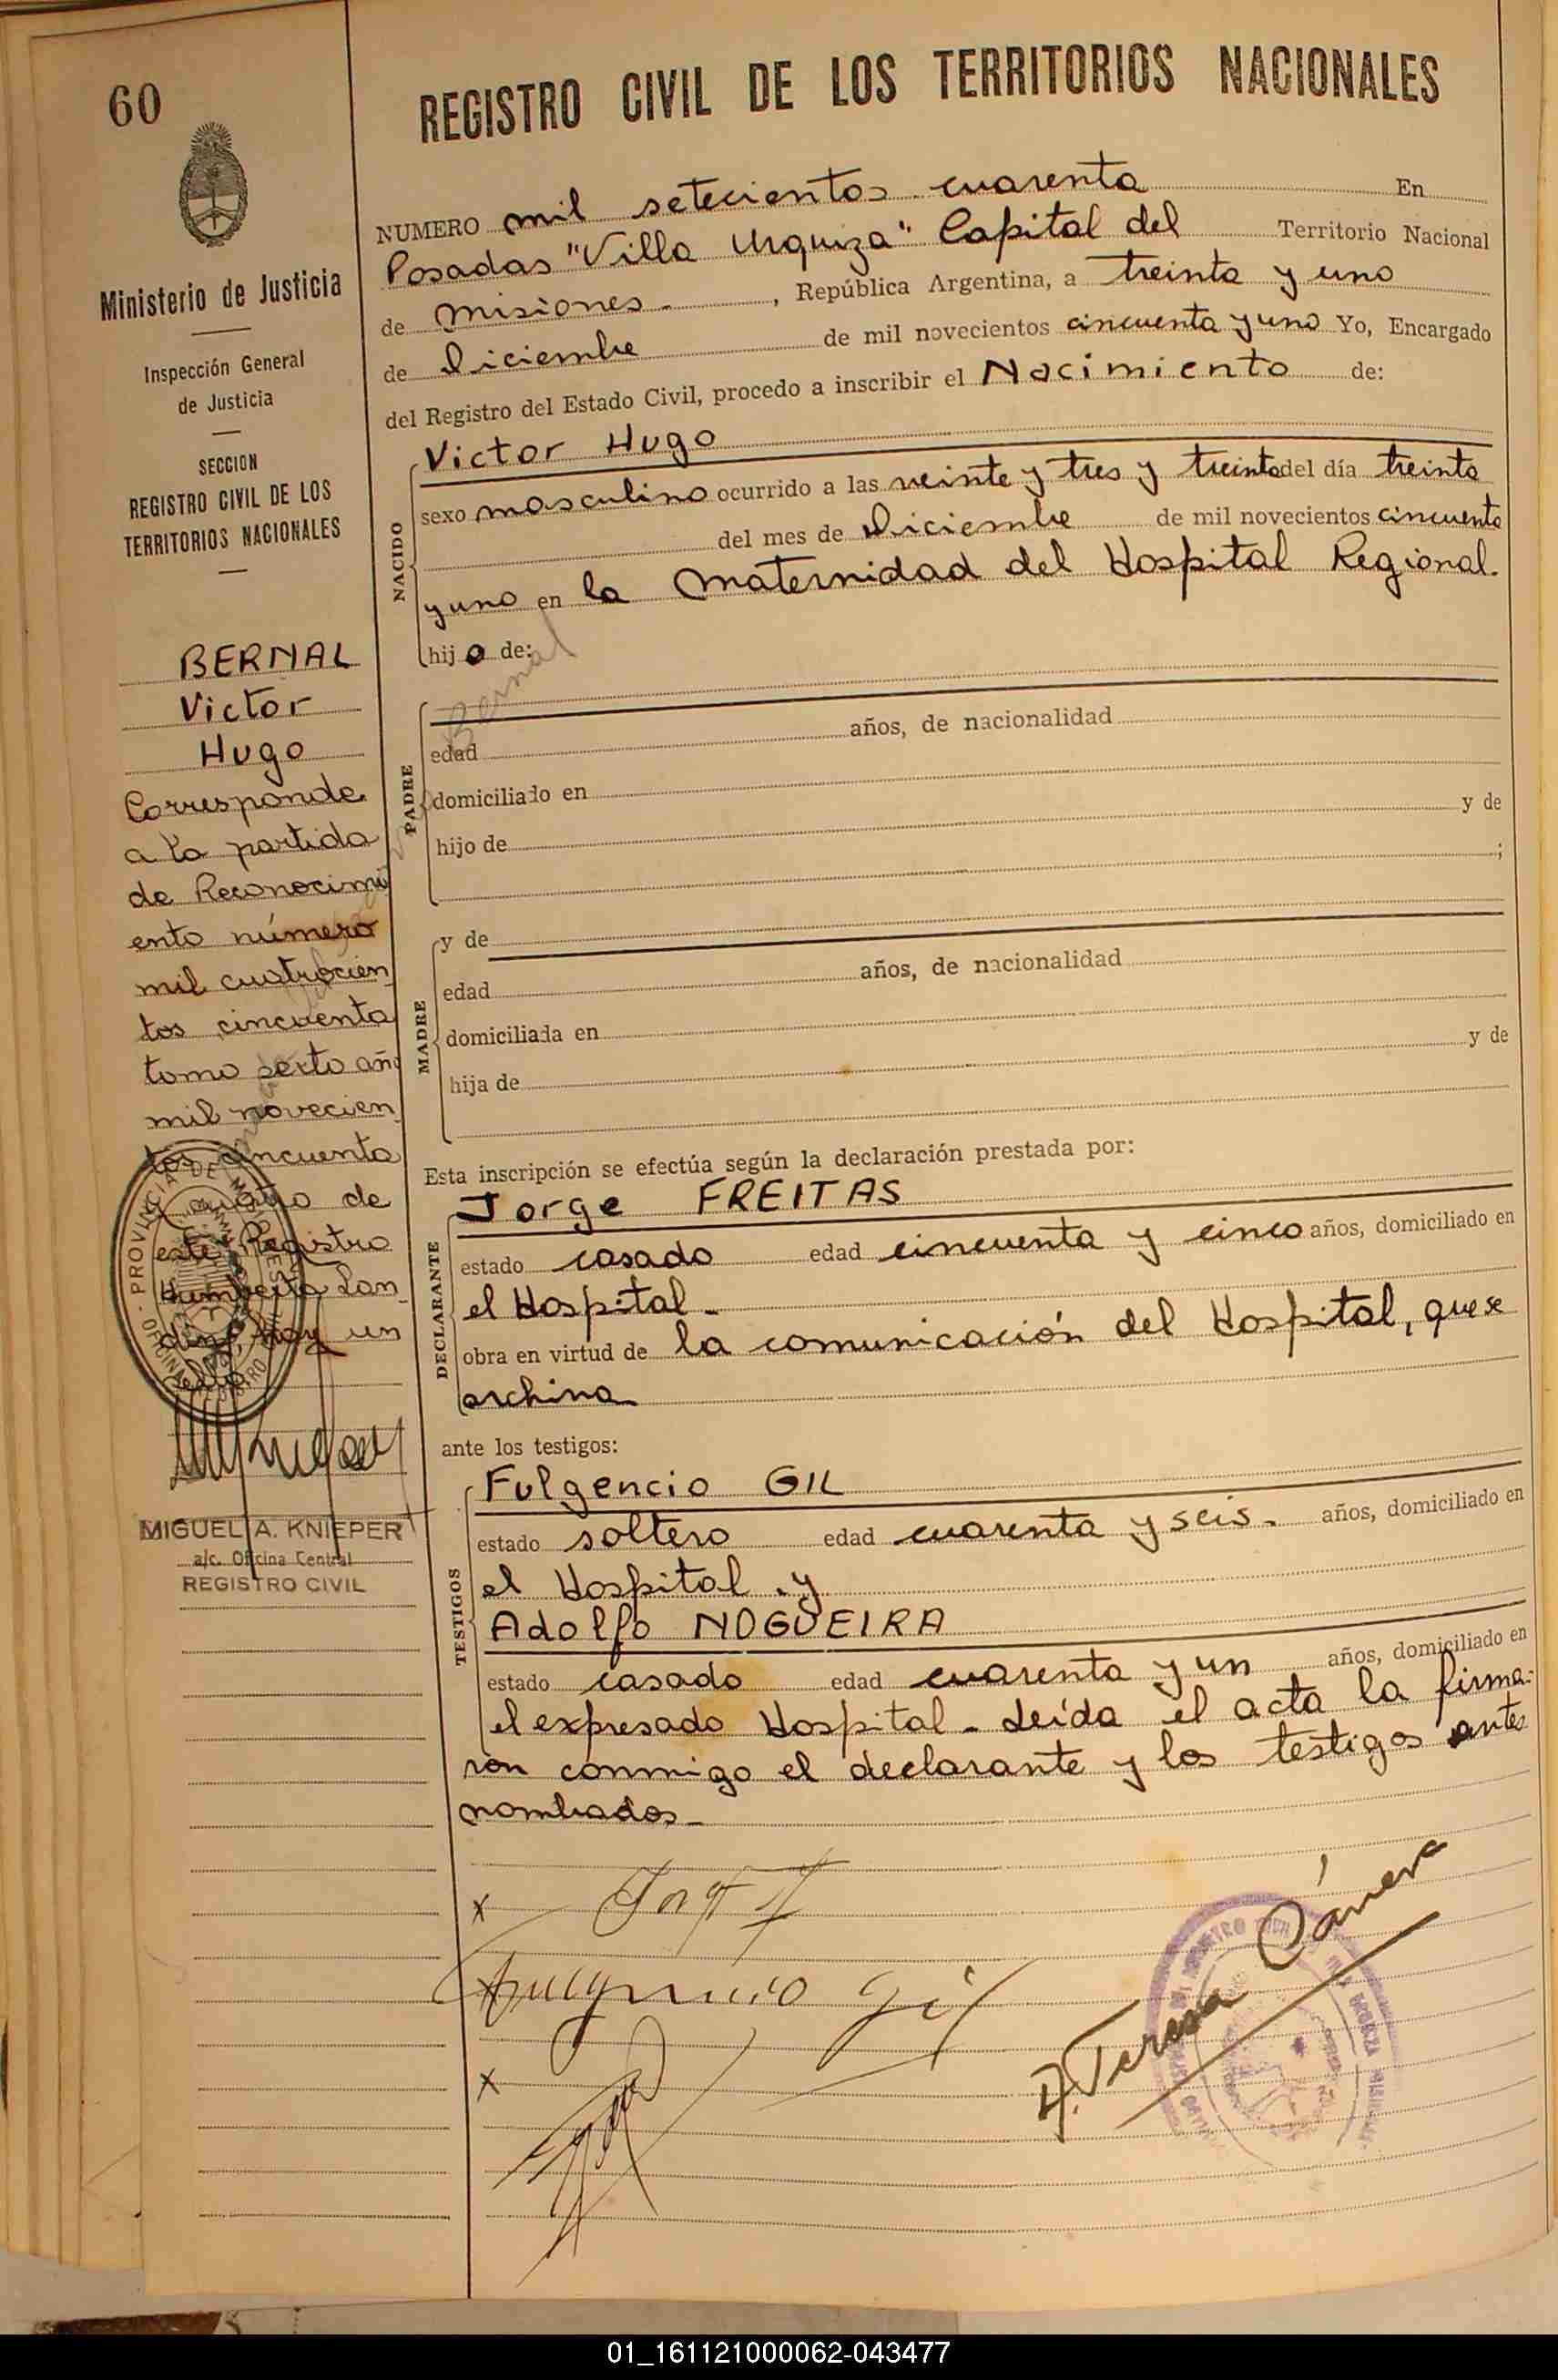 60
REGISTRO CIVIL DE LOS TERRITORIOS NACIONALES
Ministerio de Justicia
Inspección General
de Justicia
SECCION
REGISTRO CIVIL DE LOS
TERRITORIOS NACIONALES
BERNAL
Victor
Hugo
Corresponde
a la partida
de Reconocimi
ento número
mil cuatrocien
tos cincuenta
tomo sexto año
mil novecien
tos cincuenta
y cuatro de
este Registro
Humberto Lan
dino, hay un
sello
MIGUEL A. KNIEPER
a/c. Oficina Central
REGISTRO CIVIL
NUMERO mil setecientos cuarenta En
Posadas "Villa Urquiza" Capital del Territorio Nacional
de Misiones. , República Argentina, a treinta y uno
de Diciembre de mil novecientos cincuenta y uno Yo, Encargado
del Registro del Estado Civil, procedo a inscribir el Nacimiento de:
NACIDO
Victor Hugo
sexo masculino ocurrido a las veinte y tres y treinta del día treinta
del mes de Diciembre de mil novecientos cincuenta
y uno en la Maternidad del Hospital Regional.
hijo de:
Bernal
PADRE
edad años, de nacionalidad
domiciliado en
hijo de y de
;
MADRE
y de
edad años, de nacionalidad
domiciliada en
hija de y de
Esta inscripción se efectúa según la declaración prestada por:
DECLARANTE
Jorge FREITAS
estado casado edad cincuenta y cinco años, domiciliado en
el Hospital -
obra en virtud de la comunicación del Hospital, que se
archiva
ante los testigos:
TESTIGOS
Fulgencio GIL
estado soltero edad cuarenta y seis. años, domiciliado en
el Hospital . y
Adolfo NOGUEIRA
estado casado edad cuarenta y un años, domiciliado en
el expresado Hospital - Leída el acta la firma-
ron conmigo el declarante y los testigos antes
nombrados -
x
x Fulgencio Gil
x
A. Teresa Cámera
01_161121000062-043477